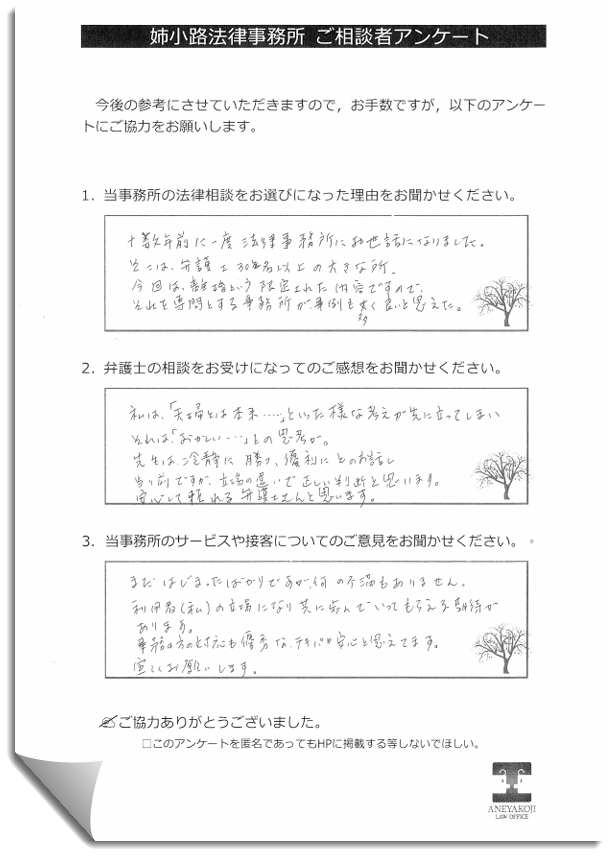 姉小路法律事務所 ご相談者アンケート
今後の参考にさせていただきますので，お手数ですが，以下のアンケー
トにご協力をお願いします。
1．当事務所の法律相談をお選びになった理由をお聞かせください。
十数年前に一度 法律事務所にお世話になりました。
そこは、弁護士30名以上の大きな所。
今回は、離婚という限定された内容ですので、
それを専門とする事務所が、事例も多く良いと思えた。
2．弁護士の相談をお受けになってのご感想をお聞かせください。
私は、「夫婦とは本来……」といった様な考えが先に立ってしまい
それは「おかしい…」との思考が。
先生は、冷静に 勝つ、優利に とのお話し
当り前ですが、立場の違いで正しい判断と思います。
安心して頼れる弁護士さんと思います。
3．当事務所のサービスや接客についてのご意見をお聞かせください。
まだはじまったばかりですが、何の不満もありません。
利用者(私)の立場になり共に歩んでいってもらえる期待が
あります。
事務の方の対応も優秀な、テキパキ安心と思えてます。
宜しくお願いします。
ご協力ありがとうございました。
□このアンケートを匿名であってもHPに掲載する等しないでほしい。
ANEYAKOJI
LAW OFFICE